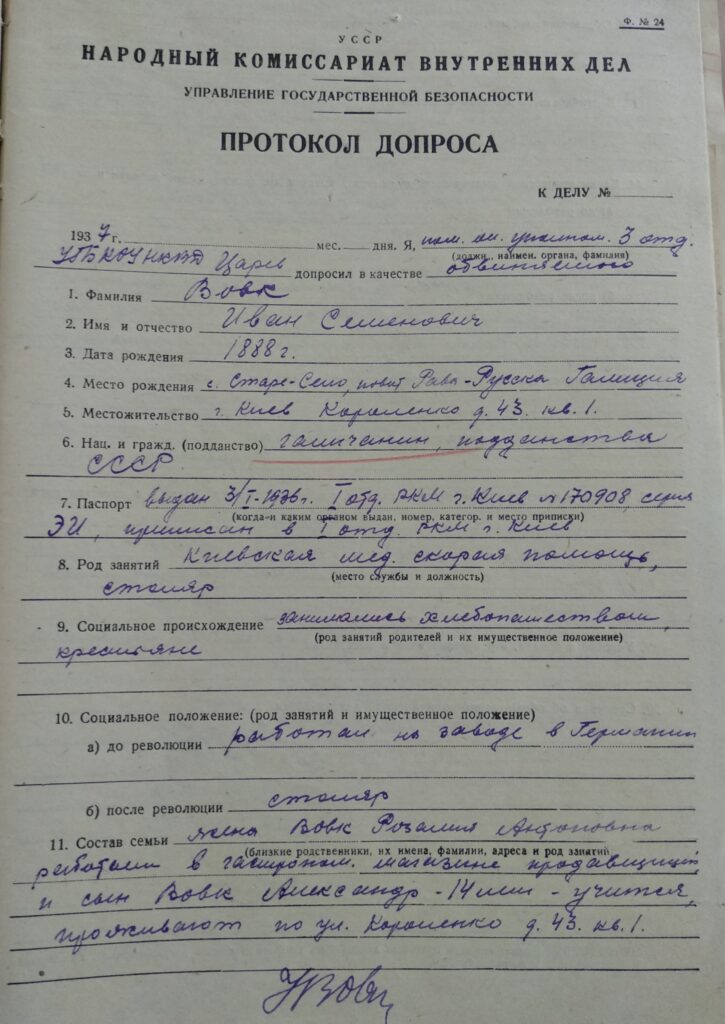 Ф. № 24
УССР
НАРОДНЫЙ КОМИССАРИАТ ВНУТРЕННИХ ДЕЛ
УПРАВЛЕНИЕ ГОСУДАРСТВЕННОЙ БЕЗОПАСНОСТИ
ПРОТОКОЛ ДОПРОСА
К ДЕЛУ №
1937 г. мес. дня. Я, пом. оп. уполном. 3 отд.
(должн., наимен. органа, фамилия)
УГБ КОУ НКВД Царев допросил в качестве обвиняемого
1. Фамилия Вовк
2. Имя и отчество Иван Семенович
3. Дата рождения 1888 г.
4. Место рождения с. Старе-Село, повит Рава-Русска Галиция
5. Местожительство г. Киев Короленко д. 43. кв. 1.
6. Нац. и гражд. (подданство) галичанин, подданства
СССР
7. Паспорт выдан 3/I-1936 г. I отд. РКМ г. Киев № 170908, серия
(когда и каким органом выдан, номер, категор. и место приписки)
ЭИ, приписан в I отд. РКМ г. Киев
8. Род занятий Киевская мед. скорая помощь,
(место службы и должность)
столяр
9. Социальное происхождение занимались хлебопашеством,
(род занятий родителей и их имущественное положение)
крестьяне
10. Социальное положение: (род занятий и имущественное положение)
а) до революции работал на заводе в Германии
б) после революции столяр
11. Состав семьи жена Вовк Розалия Антоновна
(близкие родственники, их имена, фамилии, адреса и род занятий)
работает в гастроном. магазине продавщицей
и сын Вовк Александр - 14 лет - учится,
проживают по ул. Короленко д. 43. кв. 1.